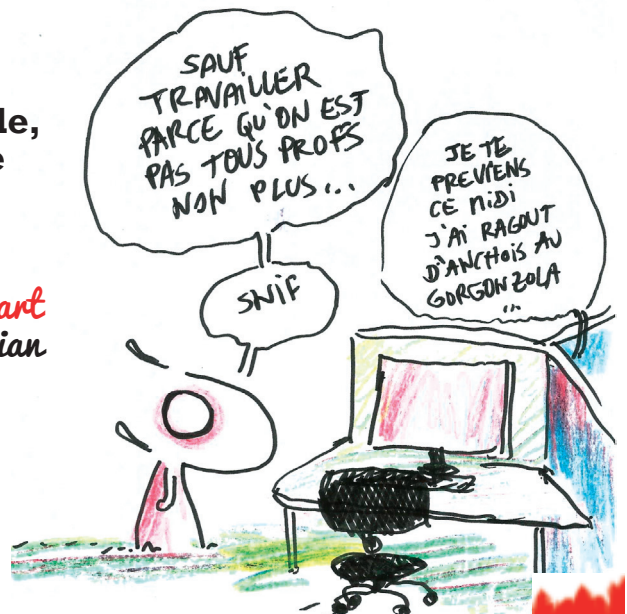 le,
e
art
ian
SAUF
TRAVAILLER
PARCE QU'ON EST
PAS TOUS PROFS
NON PLUS...
SNIF
JE TE
PREVIENS
CE MIDI
J'AI RAGOUT
D'ANCHOIS AU
GORGONZOLA
...